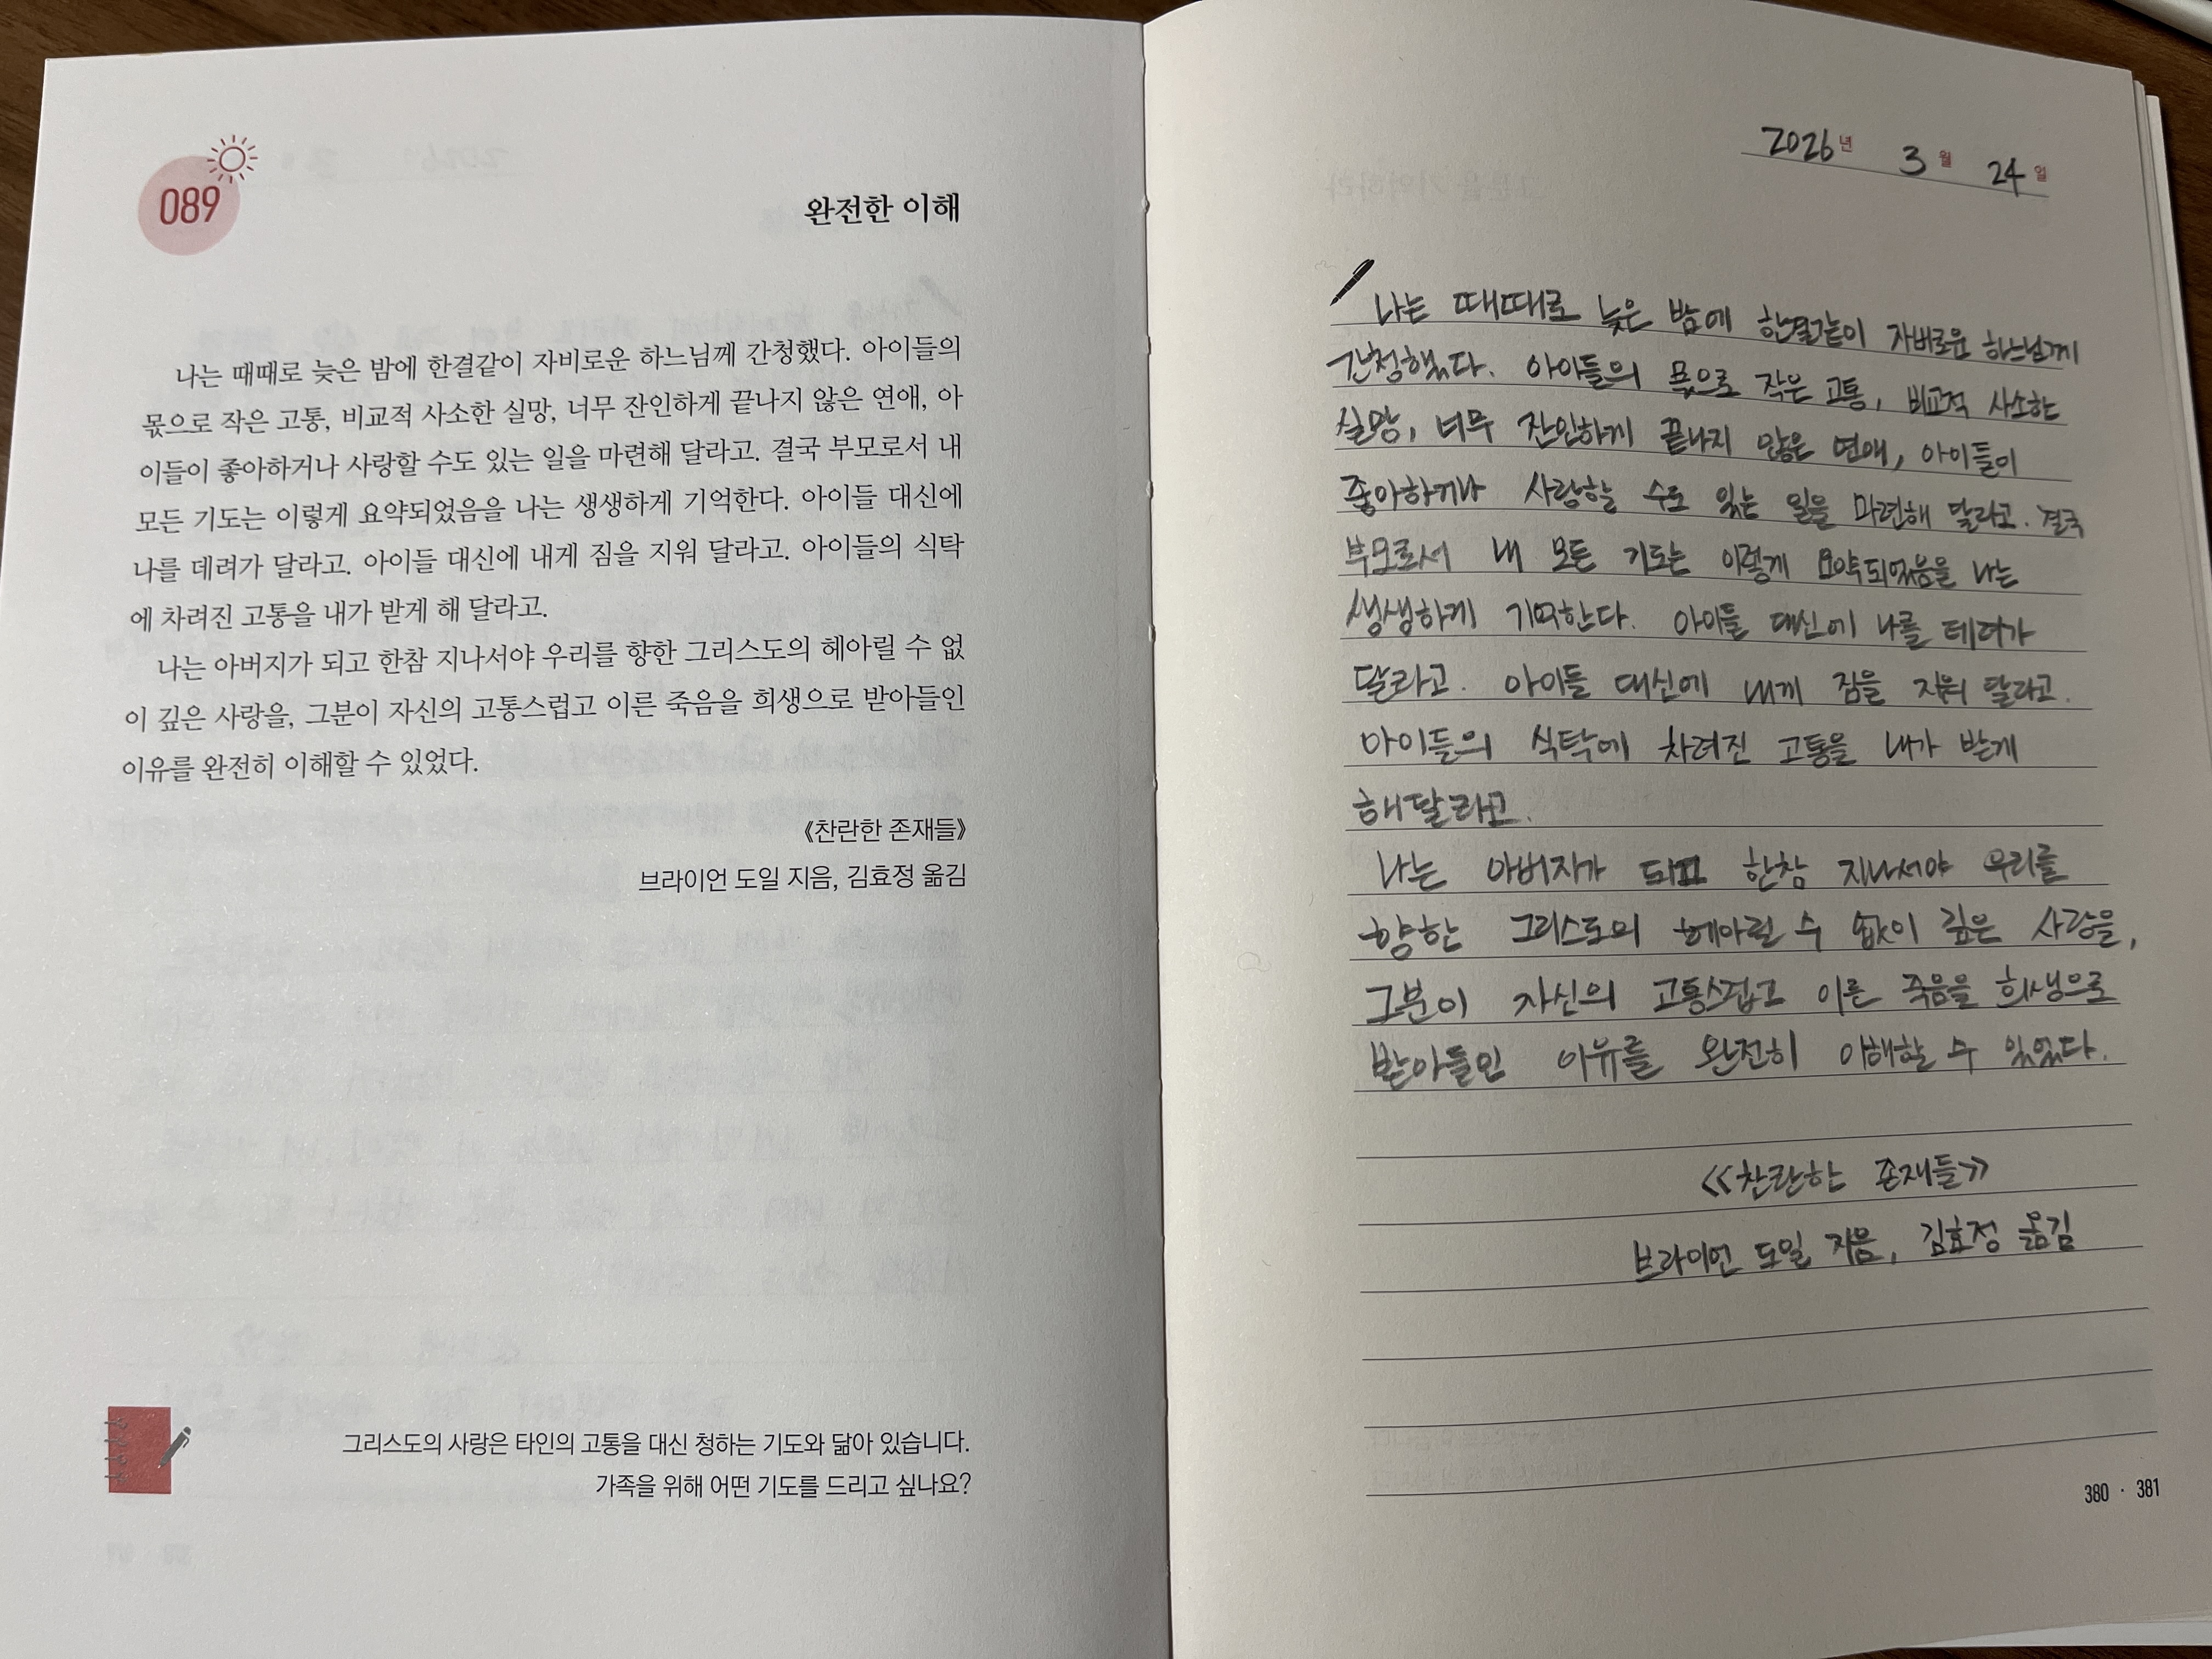 089
완전한 이해
나는 때때로 늦은 밤에 한결같이 자비로운 하느님께 간청했다. 아이들의
몫으로 작은 고통, 비교적 사소한 실망, 너무 잔인하게 끝나지 않은 연애, 아
이들이 좋아하거나 사랑할 수도 있는 일을 마련해 달라고. 결국 부모로서 내
모든 기도는 이렇게 요약되었음을 나는 생생하게 기억한다. 아이들 대신에
나를 데려가 달라고. 아이들 대신에 내게 짐을 지워 달라고. 아이들의 식탁
에 차려진 고통을 내가 받게 해 달라고.
나는 아버지가 되고 한참 지나서야 우리를 향한 그리스도의 헤아릴 수 없
이 깊은 사랑을, 그분이 자신의 고통스럽고 이른 죽음을 희생으로 받아들인
이유를 완전히 이해할 수 있었다.
《찬란한 존재들》
브라이언 도일 지음, 김효정 옮김
그리스도의 사랑은 타인의 고통을 대신 청하는 기도와 닮아 있습니다.
가족을 위해 어떤 기도를 드리고 싶나요?
2026년 3월 24일
나는 때때로 늦은 밤에 한결같이 자비로운 하느님께
간청했다. 아이들의 몫으로 작은 고통, 비교적 사소한
실망, 너무 잔인하게 끝나지 않은 연애, 아이들이
좋아하거나 사랑할 수도 있는 일을 마련해 달라고. 결국
부모로서 내 모든 기도는 이렇게 요약되었음을 나는
생생하게 기억한다. 아이들 대신에 나를 데려가
달라고. 아이들 대신에 내게 짐을 지워 달라고.
아이들의 식탁에 차려진 고통을 내가 받게
해 달라고.
나는 아버지가 되고 한참 지나서야 우리를
향한 그리스도의 헤아릴 수 없이 깊은 사랑을,
그분이 자신의 고통스럽고 이른 죽음을 희생으로
받아들인 이유를 완전히 이해할 수 있었다.
《찬란한 존재들》
브라이언 도일 지음, 김효정 옮김
380 · 381